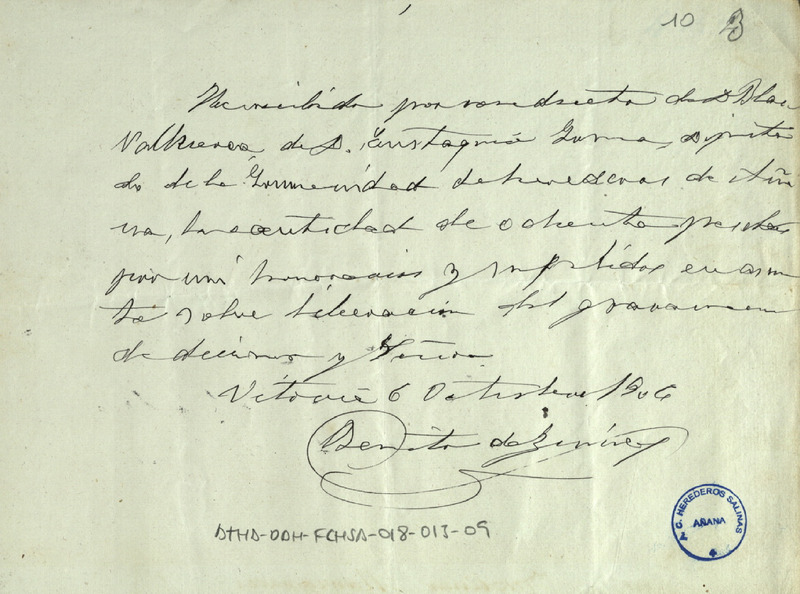 10
He recibido por conducto de D. Blas
Vallserca de D. Eustaquio Gorma, diputa
do de la Comunidad de herederos de Aña
na, la cantidad de ochenta pesetas
por mis honorarios y suplidos en asun
to sobre liberación del gravamen
de diezmos y
Vitoria 6 Octubre 1906
Benito de
ATHA-DAH-FCHSA-018-013-09
C. HEREDEROS SALINAS
AÑANA